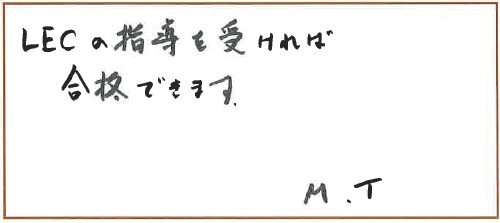 LECの指導を受ければ
合格できます。
M.T